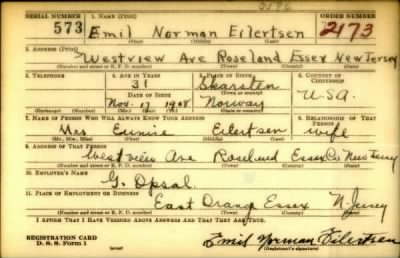 SERIAL NUMBER 1. NAME (Print) ORDER NUMBER
573 Emil Norman Eilertsen 2173
2. ADDRESS (Print)
Westview Ave Roseland Essex New Jersey
(Number and street or R. F. D. number) (Town) (County) (State)
3. TELEPHONE 4. AGE IN YEARS 5. PLACE OF BIRTH 6. COUNTRY OF CITIZENSHIP
31
DATE OF BIRTH (Town or county)
Nov. 17 1908 Norway U.S.A.
(Exchange) (Number) (Mo.) (Day) (Yr.) (State or country)
7. NAME OF PERSON WHO WILL ALWAYS KNOW YOUR ADDRESS 8. RELATIONSHIP OF THAT PERSON
Mrs Eunice Eilertsen wife
(Mr., Mrs., Miss) (First) (Middle) (Last)
9. ADDRESS OF THAT PERSON
Westview Ave Roseland Essex Co New Jersey
(Number and street or R. F. D. number) (Town) (County) (State)
10. EMPLOYER'S NAME
G. Opsal
11. PLACE OF EMPLOYMENT OR BUSINESS
East Orange Essex N. Jersey
(Number and street or R. F. D. number) (Town) (County) (State)
I AFFIRM THAT I HAVE VERIFIED ABOVE ANSWERS AND THAT THEY ARE TRUE.
REGISTRATION CARD
D. S. S. Form 1 (over) Emil Norman Eilertsen
(Registrant's signature)